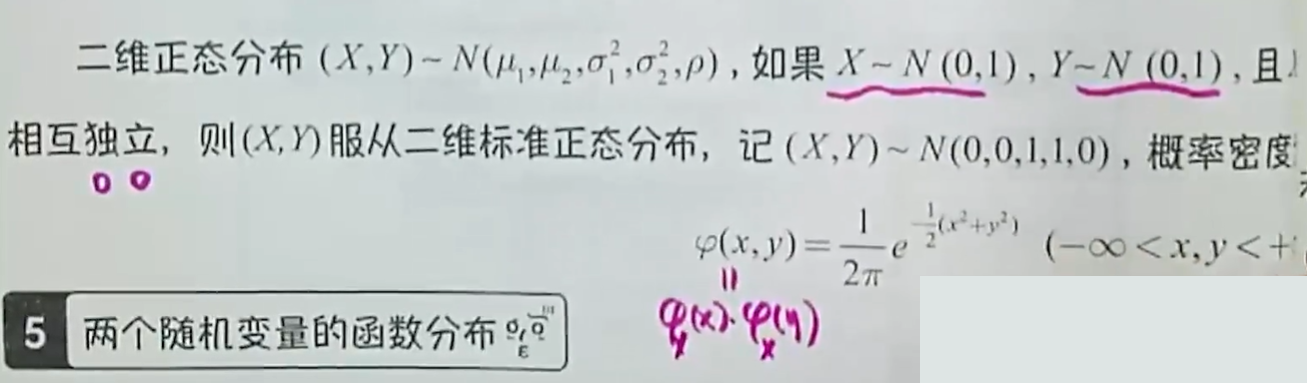 二维正态分布 (X,Y)~N(μ₁,μ₂,σ₁²,σ₂²,ρ),如果 X~N(0,1), Y~N(0,1),且
相互独立, 则(X,Y)服从二维标准正态分布, 记 (X,Y)~N(0,0,1,1,0),概率密度
φ(x,y)=\frac{1}{2π}e^{-\frac{1}{2}(x²+y²)} (-∞<x,y<+
φ(x)·φ(y)
5 两个随机变量的函数分布